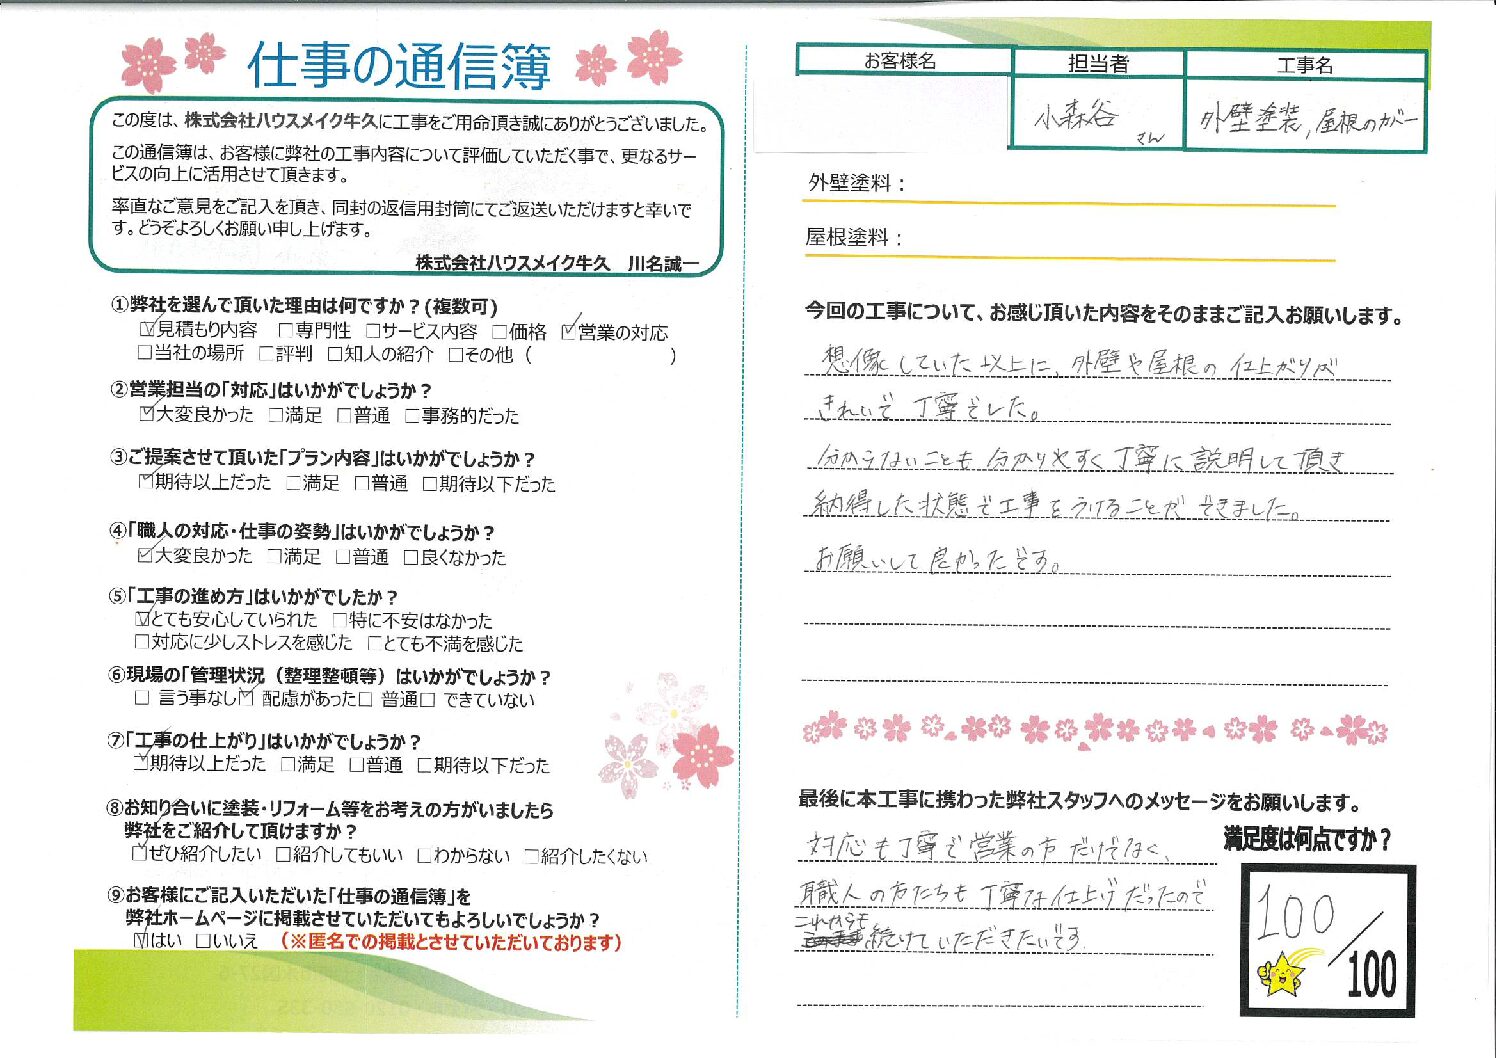 仕事の通信簿
この度は、株式会社ハウスメイク牛久に工事をご用命頂き誠にありがとうございました。
この通信簿は、お客様に弊社の工事内容について評価していただく事で、更なるサー
ビスの向上に活用させて頂きます。
率直なご意見をご記入を頂き、同封の返信用封筒にてご返送いただけますと幸いで
す。どうぞよろしくお願い申し上げます。
株式会社ハウスメイク牛久　川名誠一
①弊社を選んで頂いた理由は何ですか？(複数可)
☑見積もり内容 □専門性 □サービス内容 □価格 ☑営業の対応
□当社の場所 □評判 □知人の紹介 □その他（　　　　　　　）
②営業担当の「対応」はいかがでしょうか？
☑大変良かった □満足 □普通 □事務的だった
③ご提案させて頂いた「プラン内容」はいかがでしょうか？
☑期待以上だった □満足 □普通 □期待以下だった
④「職人の対応・仕事の姿勢」はいかがでしょうか？
☑大変良かった □満足 □普通 □良くなかった
⑤「工事の進め方」はいかがでしたか？
☑とても安心していられた □特に不安はなかった
□対応に少しストレスを感じた □とても不満を感じた
⑥現場の「管理状況（整理整頓等）はいかがでしょうか？
□ 言う事なし☑ 配慮があった□ 普通□ できていない
⑦「工事の仕上がり」はいかがでしょうか？
☑期待以上だった □満足 □普通 □期待以下だった
⑧お知り合いに塗装・リフォーム等をお考えの方がいましたら
弊社をご紹介して頂けますか？
☑ぜひ紹介したい □紹介してもいい □わからない □紹介したくない
⑨お客様にご記入いただいた「仕事の通信簿」を
弊社ホームページに掲載させていただいてもよろしいでしょうか？
☑はい □いいえ （※匿名での掲載とさせていただいております）
お客様名 担当者 工事名
小森谷 さん 外壁塗装,屋根のカバー
外壁塗料：
屋根塗料：
今回の工事について、お感じ頂いた内容をそのままご記入お願いします。
想像していた以上に、外壁や屋根の仕上がりが
きれいで丁寧でした。
分からないことも分かりやすく丁寧に説明して頂き
納得した状態で工事をうけることができました。
お願いして良かったです。
最後に本工事に携わった弊社スタッフへのメッセージをお願いします。
対応も丁寧で営業の方だけでなく、
職人の方たちも丁寧な仕上げだったので
これからも続けていただきたいです.
満足度は何点ですか？
100/100